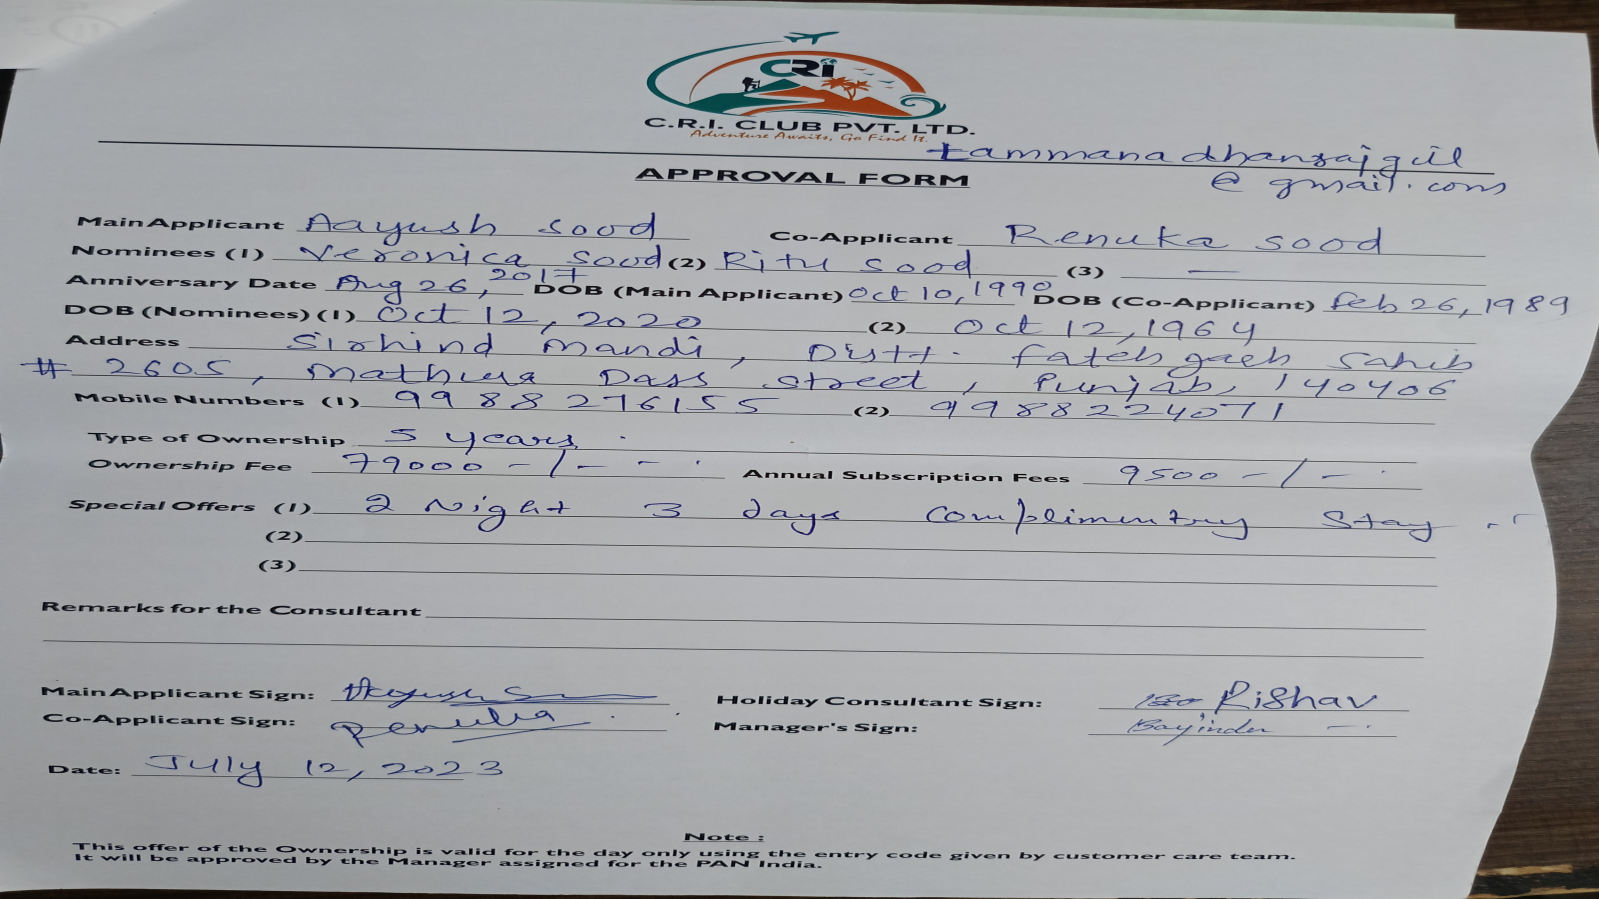 CRi
C.R.I. CLUB PVT. LTD.
Adventure Awaits, Go Find It.
tammanadhansajgill
@ gmail.com
APPROVAL FORM
Main Applicant Aayush Sood Co-Applicant Renuka Sood
Nominees (1) Veronica Sood (2) Ritu Sood (3) —
Anniversary Date Aug 26, 2017 DOB (Main Applicant) Oct 10, 1990 DOB (Co-Applicant) Feb 26, 1989
DOB (Nominees) (1) Oct 12, 2020 (2) Oct 12, 1964
Address Sirhind Mandi, Distt. Fatehgarh Sahib
# 2605, Mathura Dass Street, Punjab, 140406
Mobile Numbers (1) 9988276155 (2) 9988224071
Type of Ownership 5 years.
Ownership Fee 79000-/- - Annual Subscription Fees 9500-/-
Special Offers (1) 2 Night 3 days Complimentry Stay
(2)
(3)
Remarks for the Consultant
Main Applicant Sign: Holiday Consultant Sign: Rishav
Co-Applicant Sign: Renuka Manager's Sign:
Date: July 12, 2023
Note :
This offer of the Ownership is valid for the day only using the entry code given by customer care team.
It will be approved by the Manager assigned for the PAN India.